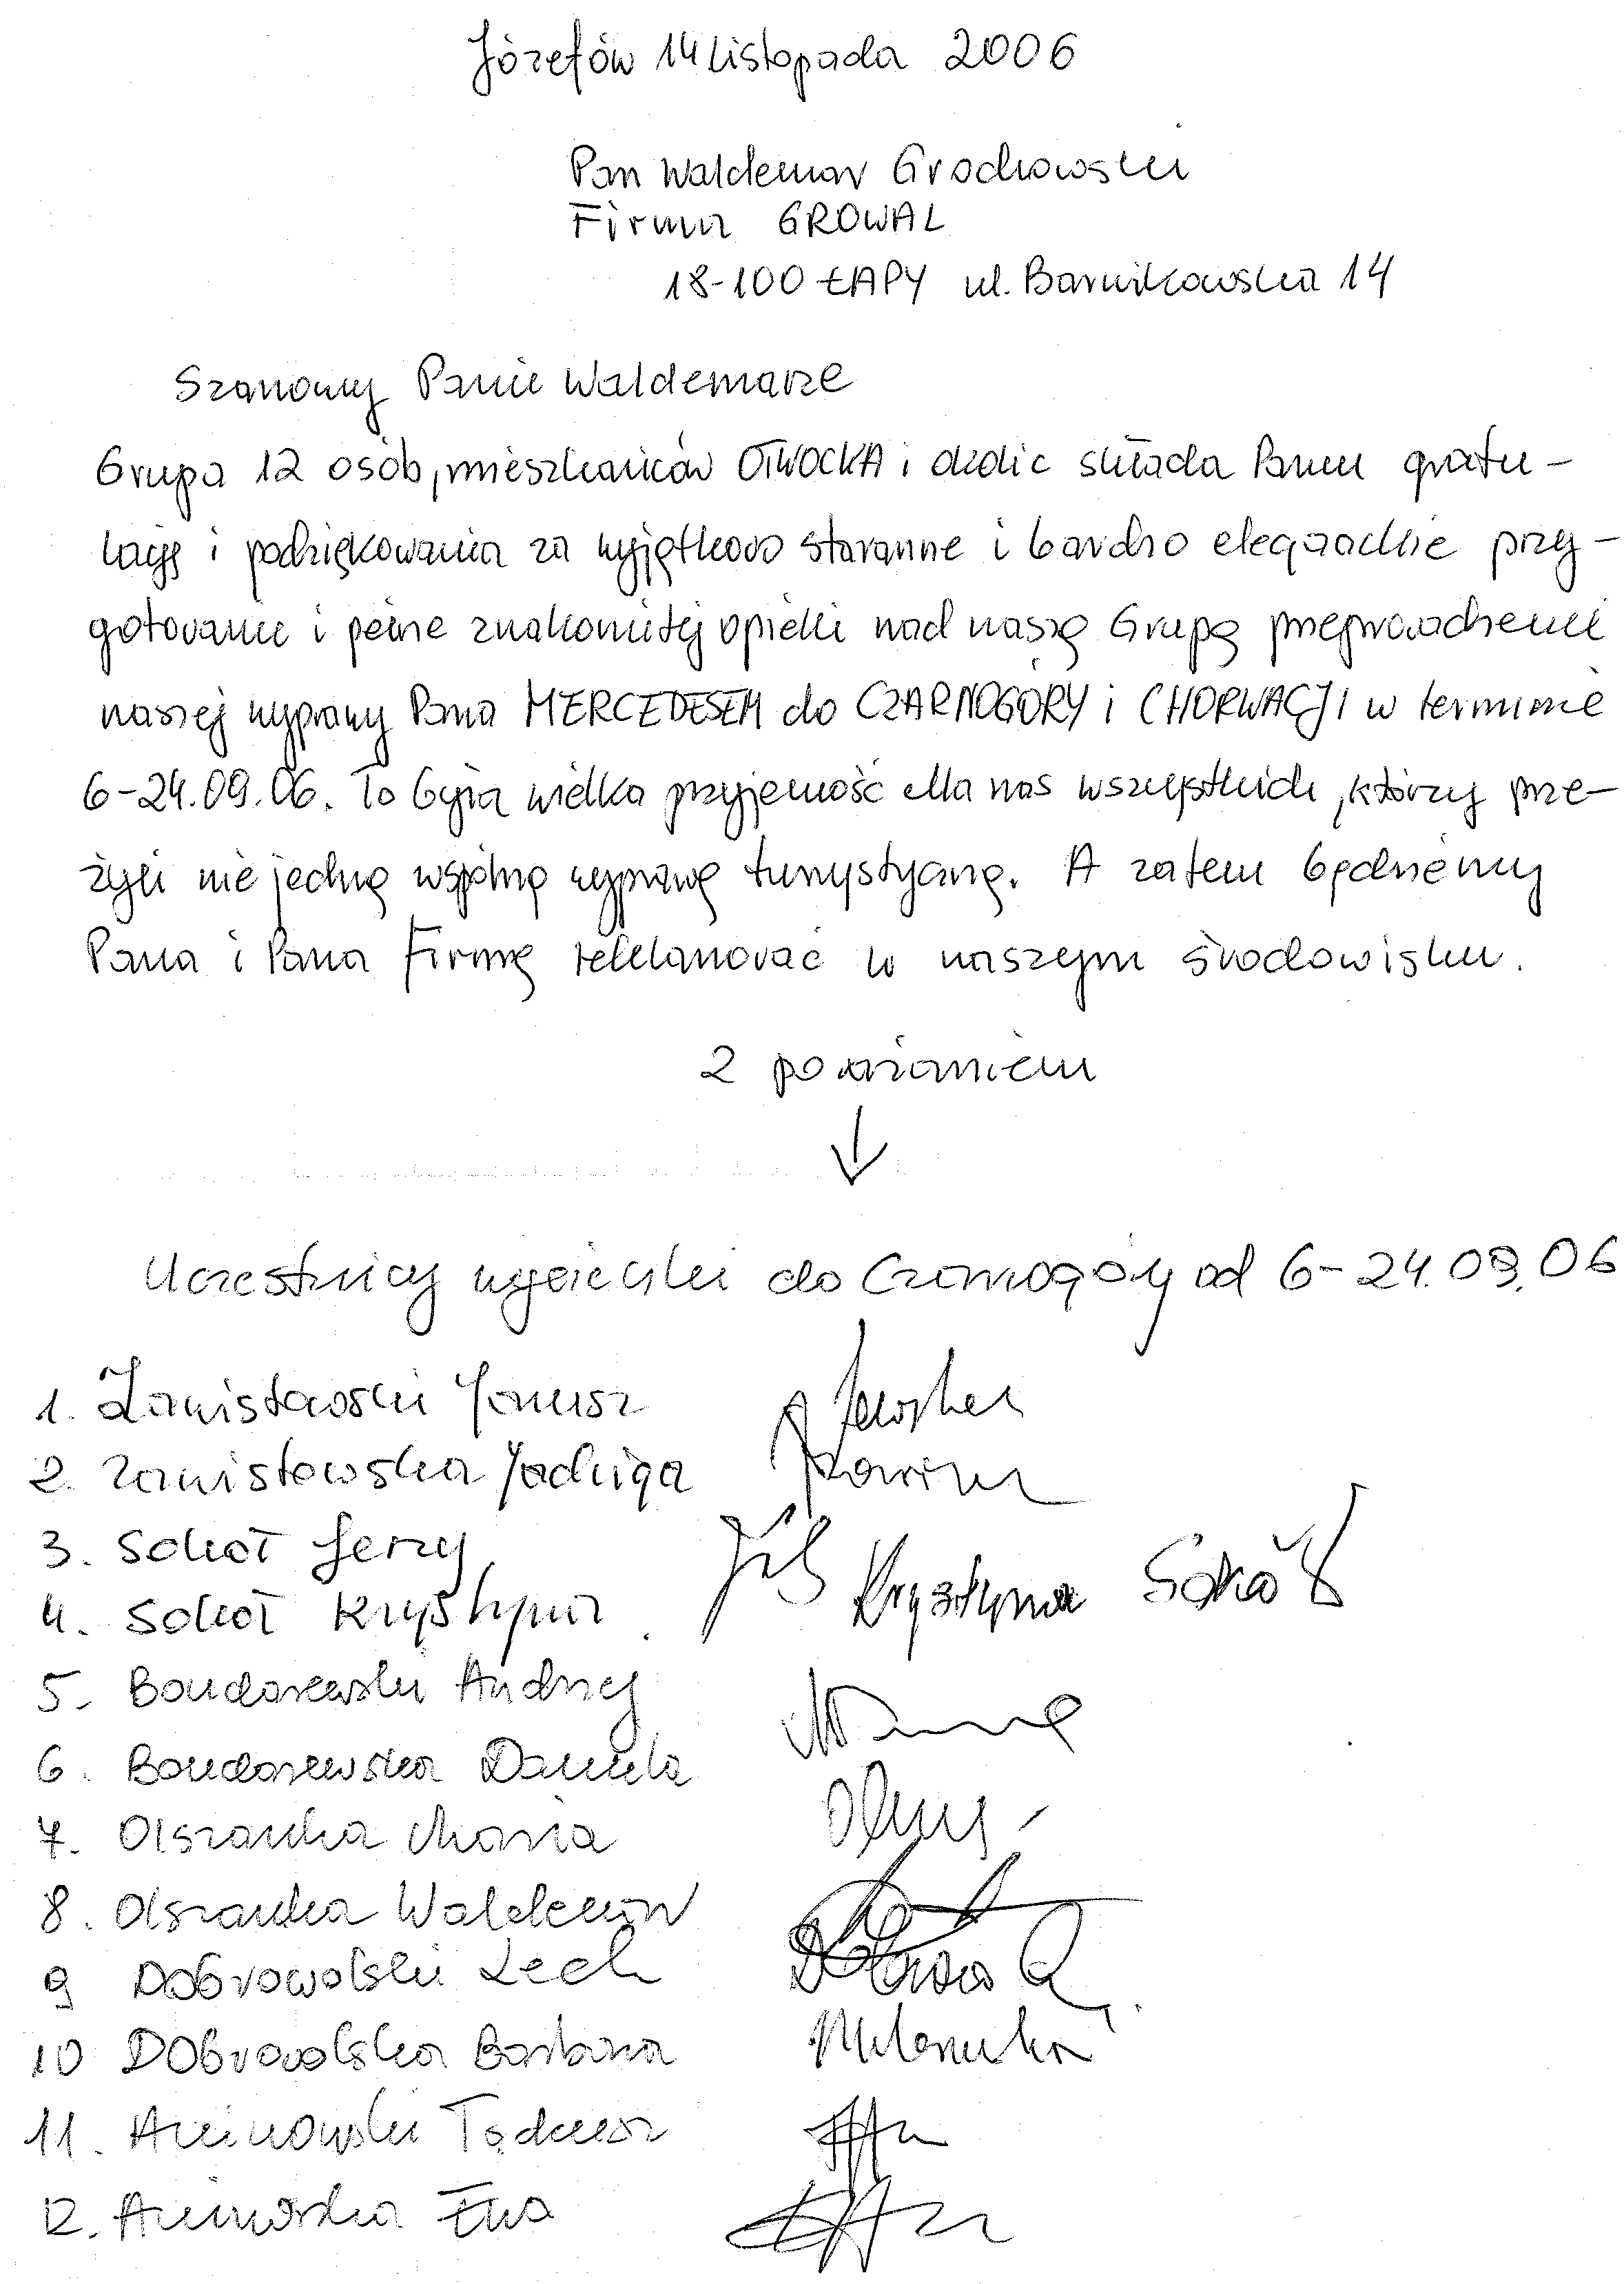 Józefów 14 listopada 2006
Pan Waldemar Grochowski
Firma GROWAL
18-100 ŁAPY ul. Barwikowska 14
Szanowny Panie Waldemarze
Grupa 12 osób, mieszkańców OTWOCKA i okolic składa Panu gratu-
lację i podziękowania za wyjątkowo staranne i bardzo eleganckie przy-
gotowanie i pełne znakomitej opieki nad naszą Grupą przeprowadzenie
naszej wyprawy Pana MERCEDESEM do CZARNOGÓRY i CHORWACJI w terminie
6-24.09.06. To była wielka przyjemność dla nas wszystkich, którzy prze-
żyli nie jedną wspólną wyprawę turystyczną. A zatem będziemy
Pana i Pana Firmę reklamować w naszym środowisku.
Z poważaniem
Uczestnicy wycieczki do Czarnogóry od 6-24.09.06
1. Zanistawski Janusz
2. Zanistowska Jadwiga
3. Sokół Jerzy
4. Sokół Krystyna Krystyna Sokół
5. Bondarewski Andrzej
6. Bondarewska Daniela
7. Olszańska Maria
8. Olszańska Waldemar
9 Dobrowolski Lech
10 Dobrowolska Barbara
11. Tadeusz
12. Ewa